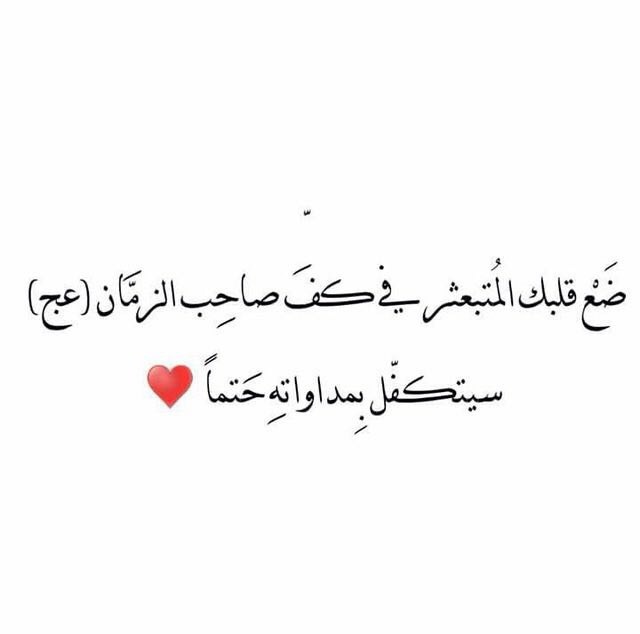 ضَعْ قلبك المُتبعثر في كفَ صاحِب الزمَّان (عج)
سيتكفّل بِمداواتهِ حَتماً ♥️